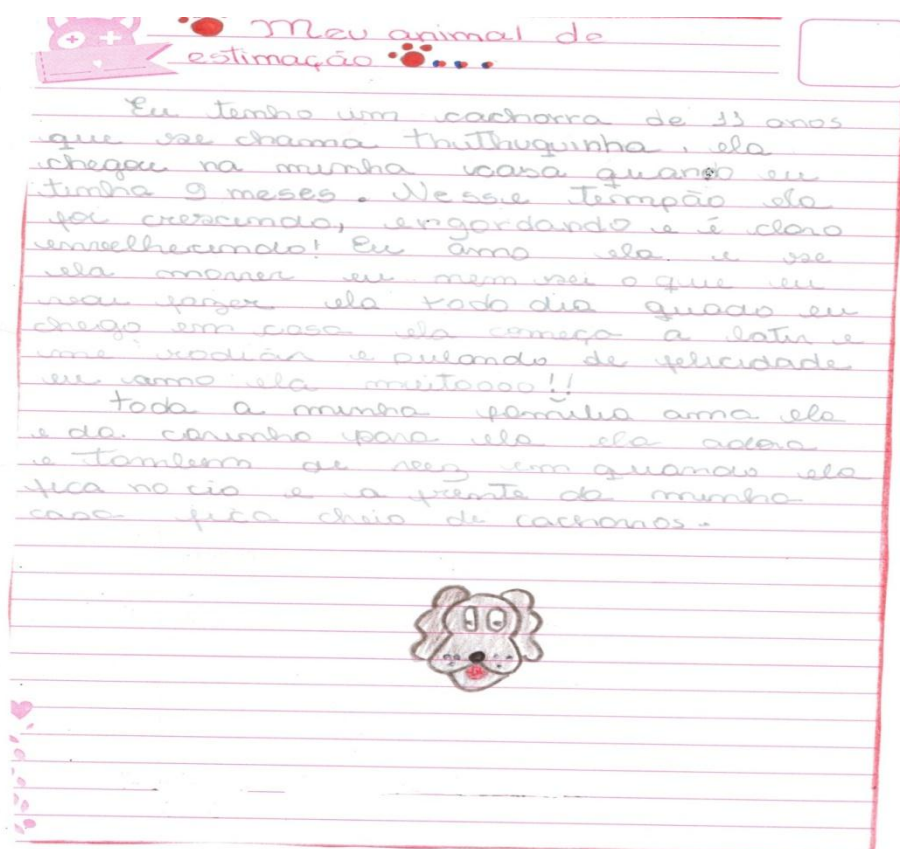 Meu animal de
estimação
Eu tenho um cachorra de 11 anos
que se chama thuthuquinha, ela
chegou na minha casa quando eu
tinha 9 meses. Nesse tempão ela
foi crescendo, engordando e é claro
envelhecendo! Eu amo ela e se
ela morrer eu nem sei o que eu
vou fazer ela todo dia quado eu
chego em casa ela começa a latir e
me rodiar e pulando de felicidade
eu amo ela muitoooo!!
toda a minha familia ama ela
e da carinho para ela ela adora
e tambem de vez em quando ela
fica no cio e a frente da minha
casa fica cheio de cachorros.